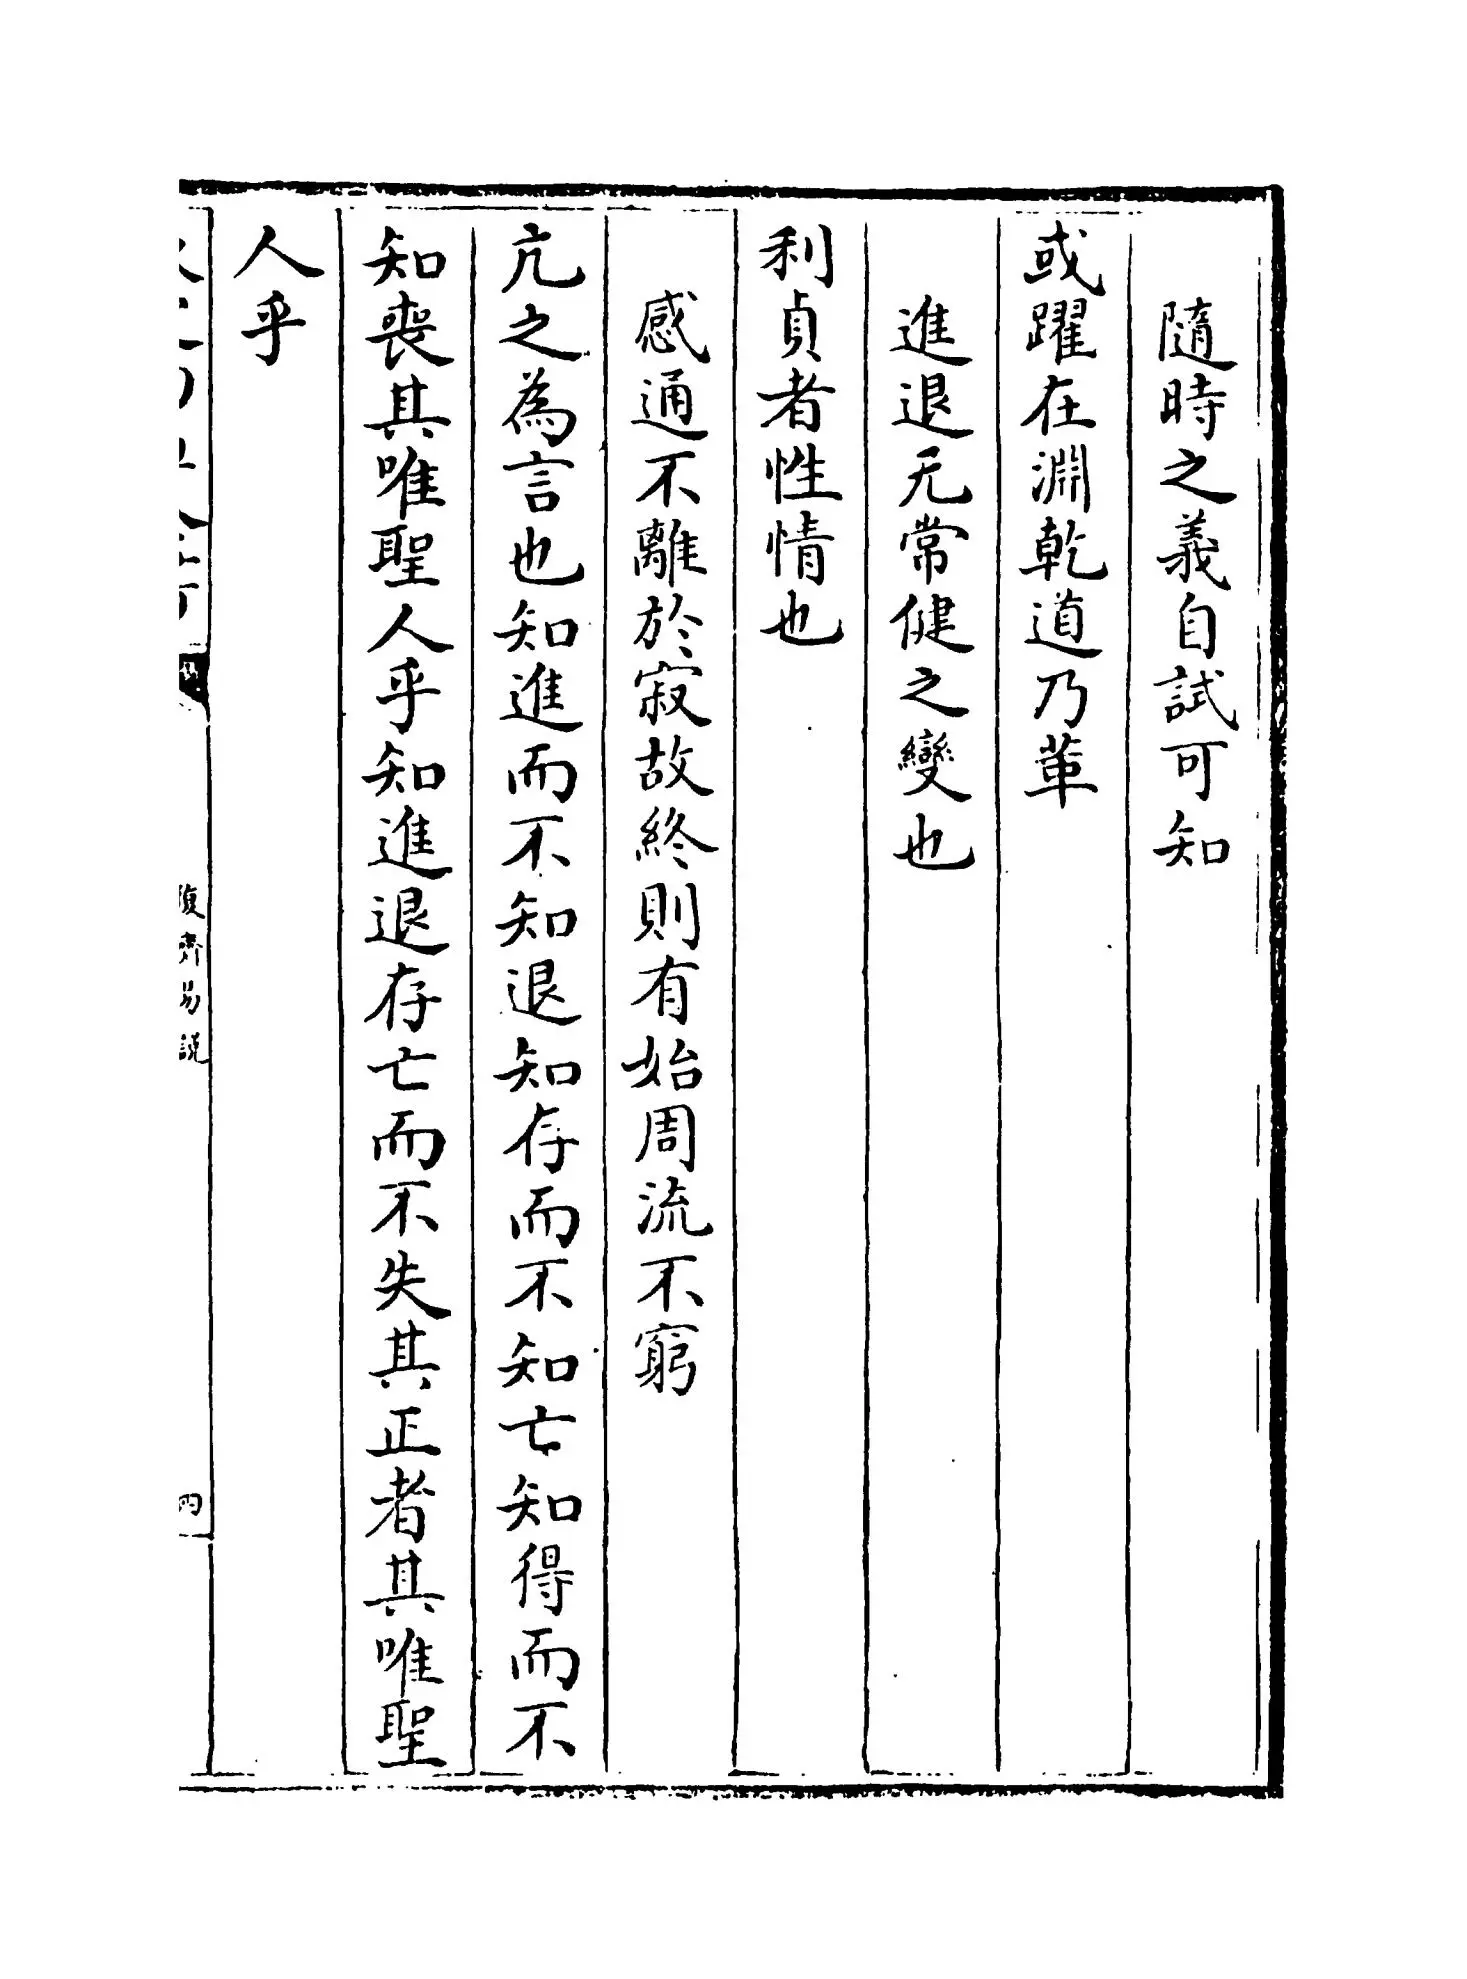 隨時之義自試可知
或躍在淵乾道乃革
進退无常健之變也
利貞者性情也
感通不離於寂故終則有始周流不窮
亢之為言也知進而不知退知存而不知亡知得而不
知喪其唯聖人乎知進退存亡而不失其正者其唯聖
人乎
復齋易說
四